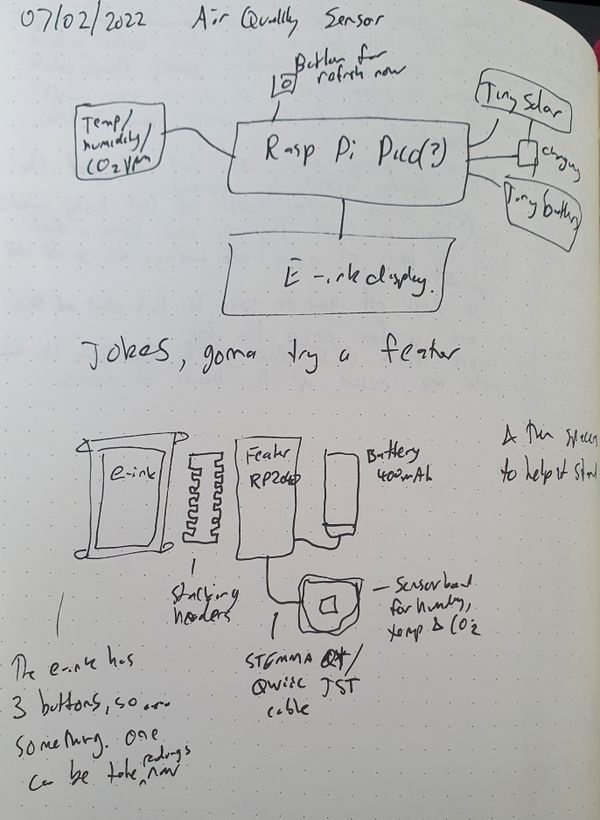 07/02/2022 Air Quality Sensor
Button for
refresh now
Temp/
humidity/
CO2
Rasp Pi Pico(?)
Tiny Solar
charging
Tiny battery
E-ink display
Jokes, gonna try a feater
e-ink
Feater
RP2040
Battery
400mAh
to help it stand
Stacking
headers
Sensor board
for humidity,
temp & CO2
STEMMA QT/
Qwiic JST
cable
The e-ink has
3 buttons, so
something. one
can be take readings
now